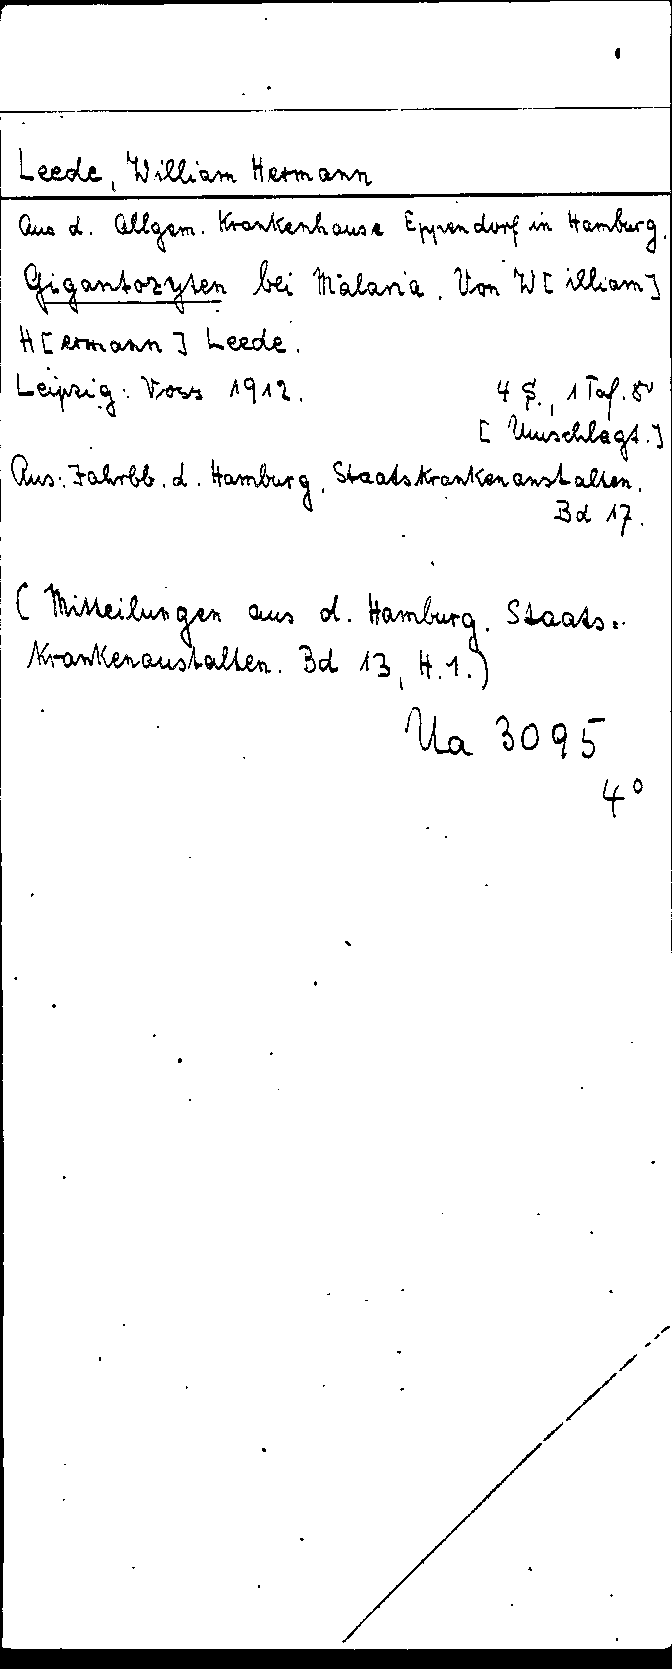 Leede, William Hermann
Aus d. Allgem. Krankenhause Eppendorf in Hamburg.
Gigantozyten bei Malaria. Von W[illiam]
H[ermann] Leede.
Leipzig: Voss 1912. 4 S., 1 Taf. 8°
[Umschlagt.]
Aus: Jahrbb. d. Hamburg. Staatskrankenanstalten.
Bd 17.
(Mitteilungen aus d. Hamburg. Staats=
Krankenanstalten. Bd 13, H. 1.)
Ua 3095
4°